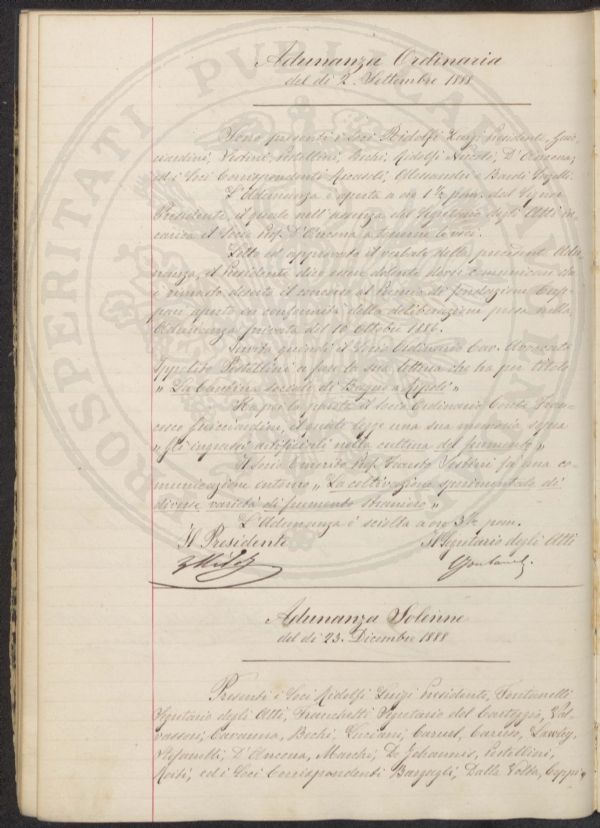 Adunanza Ordinaria
del dì 2. Settembre 1888
Sono presenti i Soci Ridolfi Luigi Presidente, Guic-
ciardini, Sestini, Pestellini, Bechi, Ridolfi Niccolò, D'Ancona,
ed i Soci Corrispondenti Alessandri e Bardi
L'Adunanza è aperta a ore 1½ pom. dal Signor
Presidente, il quale nell'assenza del Segretario degli Atti in-
carica il Socio Prof. D'Ancona a tenerne le veci.
Letto ed approvato il verbale della precedente Adu-
nanza, il Presidente dice esser dolente dover comunicare che
è rimasto deserto il concorso al Premio di fondazione Cup-
pari aperto in conformità della deliberazione presa nella
Adunanza privata del 10 Ottobre 1886.
Invita quindi il Socio Ordinario Cav. Avvocato
Ippolito Pestellini a fare la sua lettura che ha per titolo
„ La Cantina sociale di Bagno a Ripoli „
Ha poi la parola il Socio Ordinario Conte Fran-
cesco Guicciardini, il quale legge una sua memoria sopra
„ Gli ingrassi artificiali nella cultura del frumento „
Il Socio Emerito Prof. Fausto Sestini fa una co-
municazione intorno „ La coltivazione sperimentale di
diverse varietà di frumento straniero „
L'Adunanza è sciolta a ore 3½ pom.
Il Presidente Il Segretario degli Atti
L Ridolfi
Adunanza Solenne
del dì 23. Dicembre 1888
Presenti i Soci Ridolfi Luigi Presidente, Fontanelli
Segretario degli Atti, Franchetti Segretario del Carteggio, Val-
vassori, Cavanna, Bechi, Luciani, Caruel, Caruso, Lawley,
Stefanelli, D'Ancona, Marchi, De Johannes, Pestellini,
Roiti, ed i Soci Corrispondenti Bargagli, Dalla Volta, Cappi,
PROSPERITATI PVBLICAE AVGENDAE